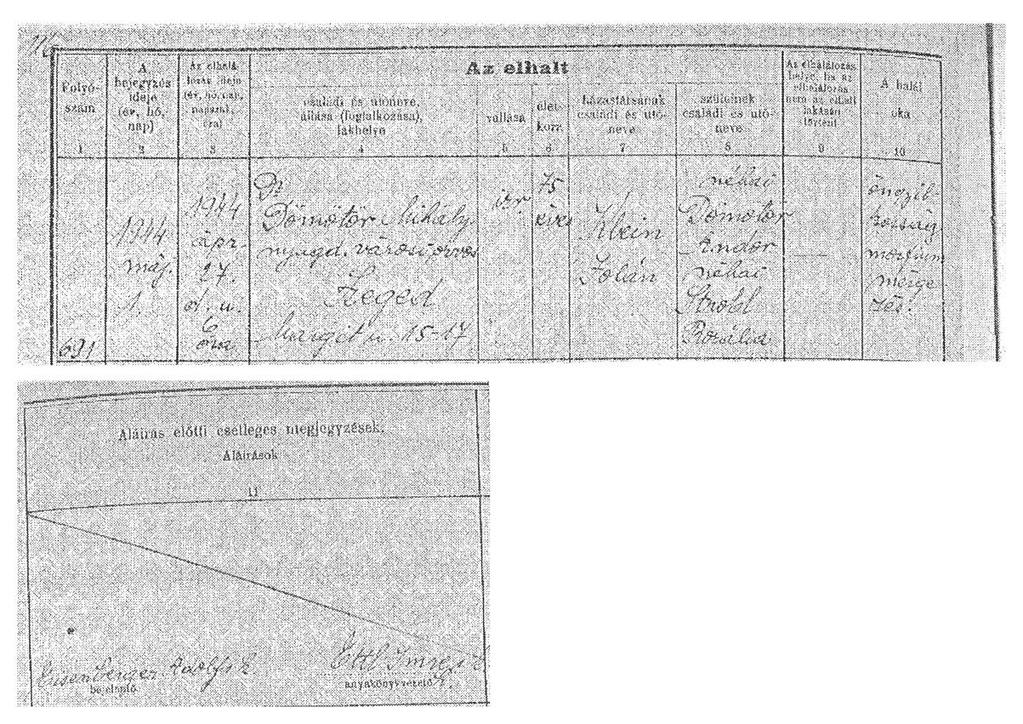 Az elhalt
Folyó-
szám
A
bejegyzés
ideje
(év, hó,
nap)
Az elhalá-
lozás ideje
(év, hó, nap,
napszak,
óra)
családi és utóneve,
állása (foglalkozása),
lakhelye
vallása
élet-
kora
házastársának
családi és utó-
neve
szüleinek
családi és utó-
neve
Az elhalálozás
helye, ha az
elhalálozás
nem az elhalt
lakásán
történt
A halál
oka
1 2 3 4 5 6 7 8 9 10
691
1944
máj.
1.
1944
ápr.
27.
d. u.
6
óra
Dr
Dömötör Mihály
nyugd. városi orvos
Szeged
Margit u. 15-17
izr.
75
éves
Klein
Jolán
néhai
Dömötör
Andor
néhai
Strobl
Rozália
öngyil-
kosság
morfium
mérge-
zés.
Aláírás előtti esetleges megjegyzések.
Aláírások
11
Eisenberger Adolf s. k.
bejelentő.
Ettl Imre s. k.
anyakönyvvezető